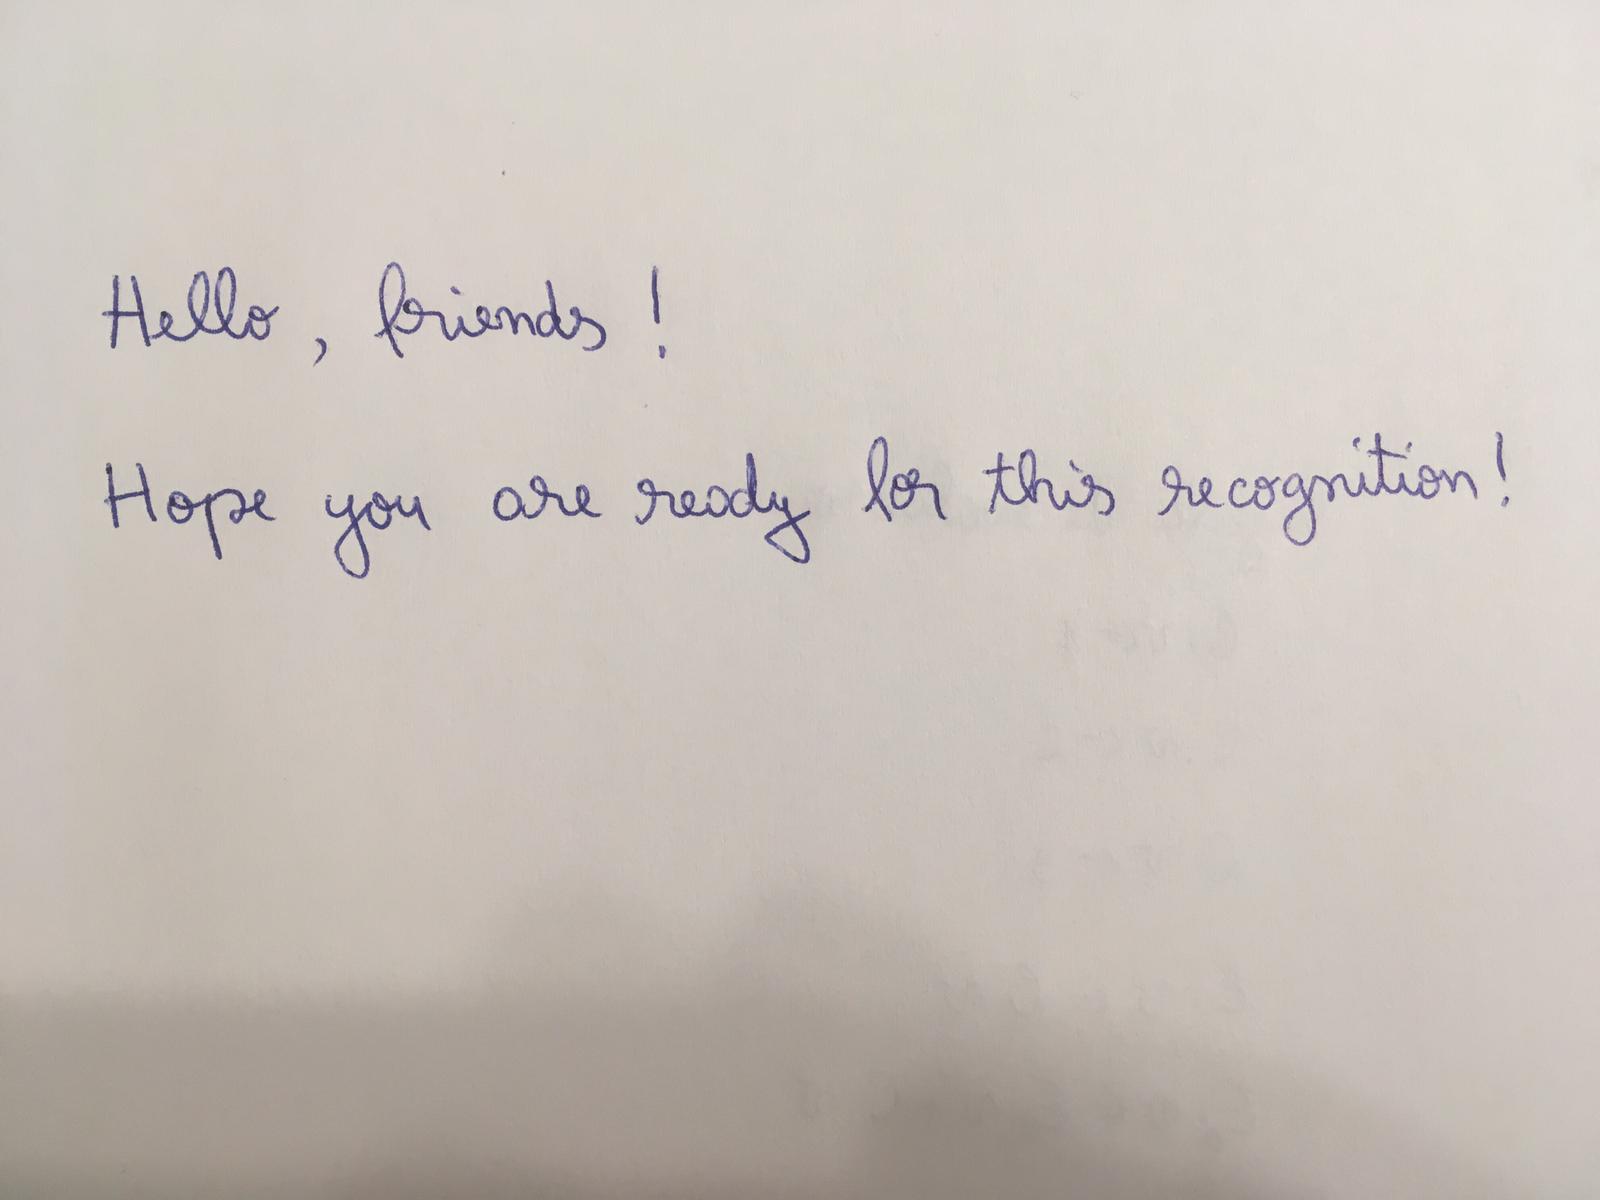 Hello, friends!
Hope you are ready for this recognition!